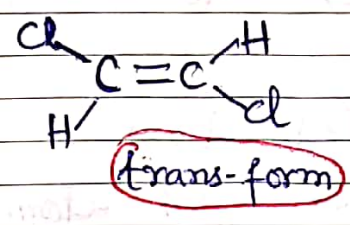 Cl H
C=C
H Cl
trans-form